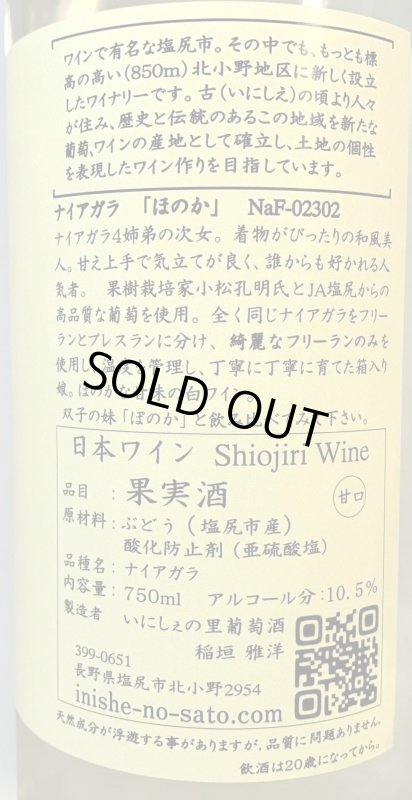 ワインで有名な塩尻市。その中でも、もっとも標
高の高い(850m)北小野地区に新しく設立
したワイナリーです。古(いにしえ)の頃より人々
が住み、歴史と伝統のあるこの地域を新たな
葡萄、ワインの産地として確立し、土地の個性
を表現したワイン作りを目指しています。
ナイアガラ 「ほのか」 NaF-02302
ナイアガラ4姉弟の次女。着物がぴったりの和風美
人。甘え上手で気立てが良く、誰からも好かれる人
気者。 果樹栽培家小松孔明氏とJA塩尻からの
高品質な葡萄を使用。全く同じナイアガラをフリー
ランとプレスランに分け、綺麗なフリーランのみを
使用し、温度を管理し、丁寧に丁寧に育てた箱入り
娘。ほのかな甘味の白ワイン。
SOLD OUT
双子の妹「ぽのか」と飲み比べてみて下さい。
日本ワイン Shiojiri Wine
品目 : 果実酒 甘口
原材料 : ぶどう(塩尻市産)
酸化防止剤(亜硫酸塩)
品種名 : ナイアガラ
内容量 : 750ml アルコール分:10.5%
製造者 いにしぇの里葡萄酒
稲垣 雅洋
399-0651
長野県塩尻市北小野2954
inishe-no-sato.com
天然成分が浮遊する事がありますが、品質に問題ありません。
飲酒は20歳になってから。